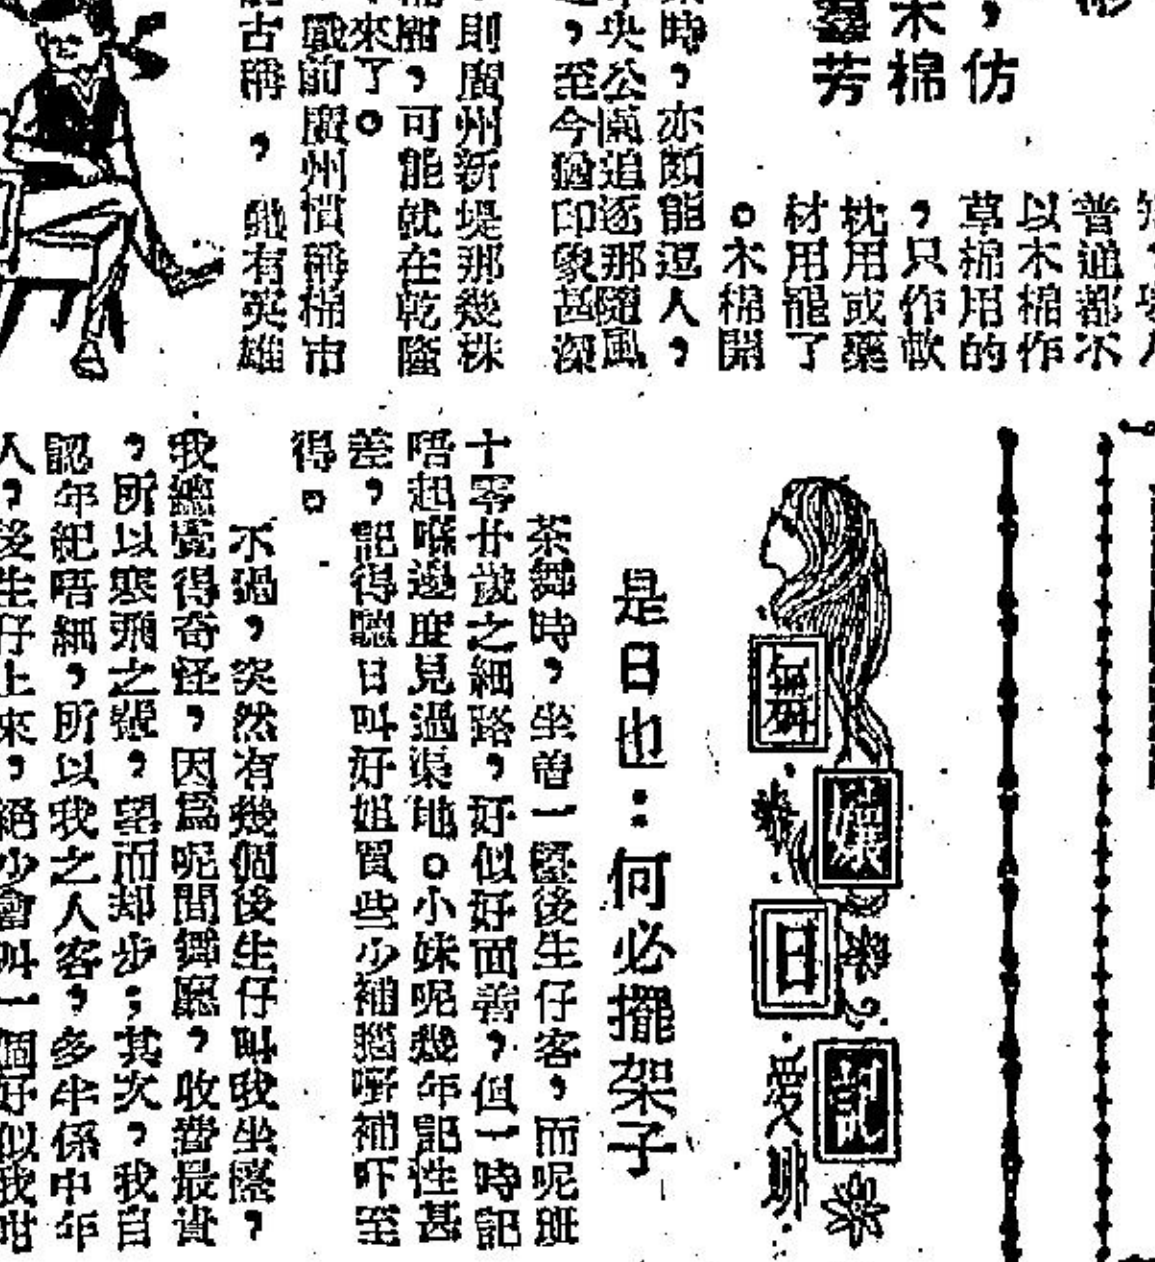 木棉仿
芳
普通都不
以木棉作
草棉用的
，只作軟
枕用或藥
材用罷了
。木棉開
時，亦頗能逗人，
央公園追逐那隨風
，至今猶印象甚深
則廣州新堤那幾株
，可能就在乾隆
來了。
戰前廣州慣稱棉市
古稱，他有英雄
舞孃日記
愛娜
是日也：何必擺架子
茶舞時，坐着一臺後生仔客，而呢班
十零廿歲之細路，好似好面善，但一時記
唔起喺邊度見過渠哋。小妹呢幾年記性甚
差，記得聽日叫好姐買些少補腦嘢補吓至
得。
不過，突然有幾個後生仔叫我坐檯，
我總覺得奇怪，因爲呢間舞廳，收費最貴
，所以寒飛之號，望而却步；其次，我自
認年紀唔細，所以我之人客，多半係中年
人，後生仔上來，絕少會叫一個好似我咁